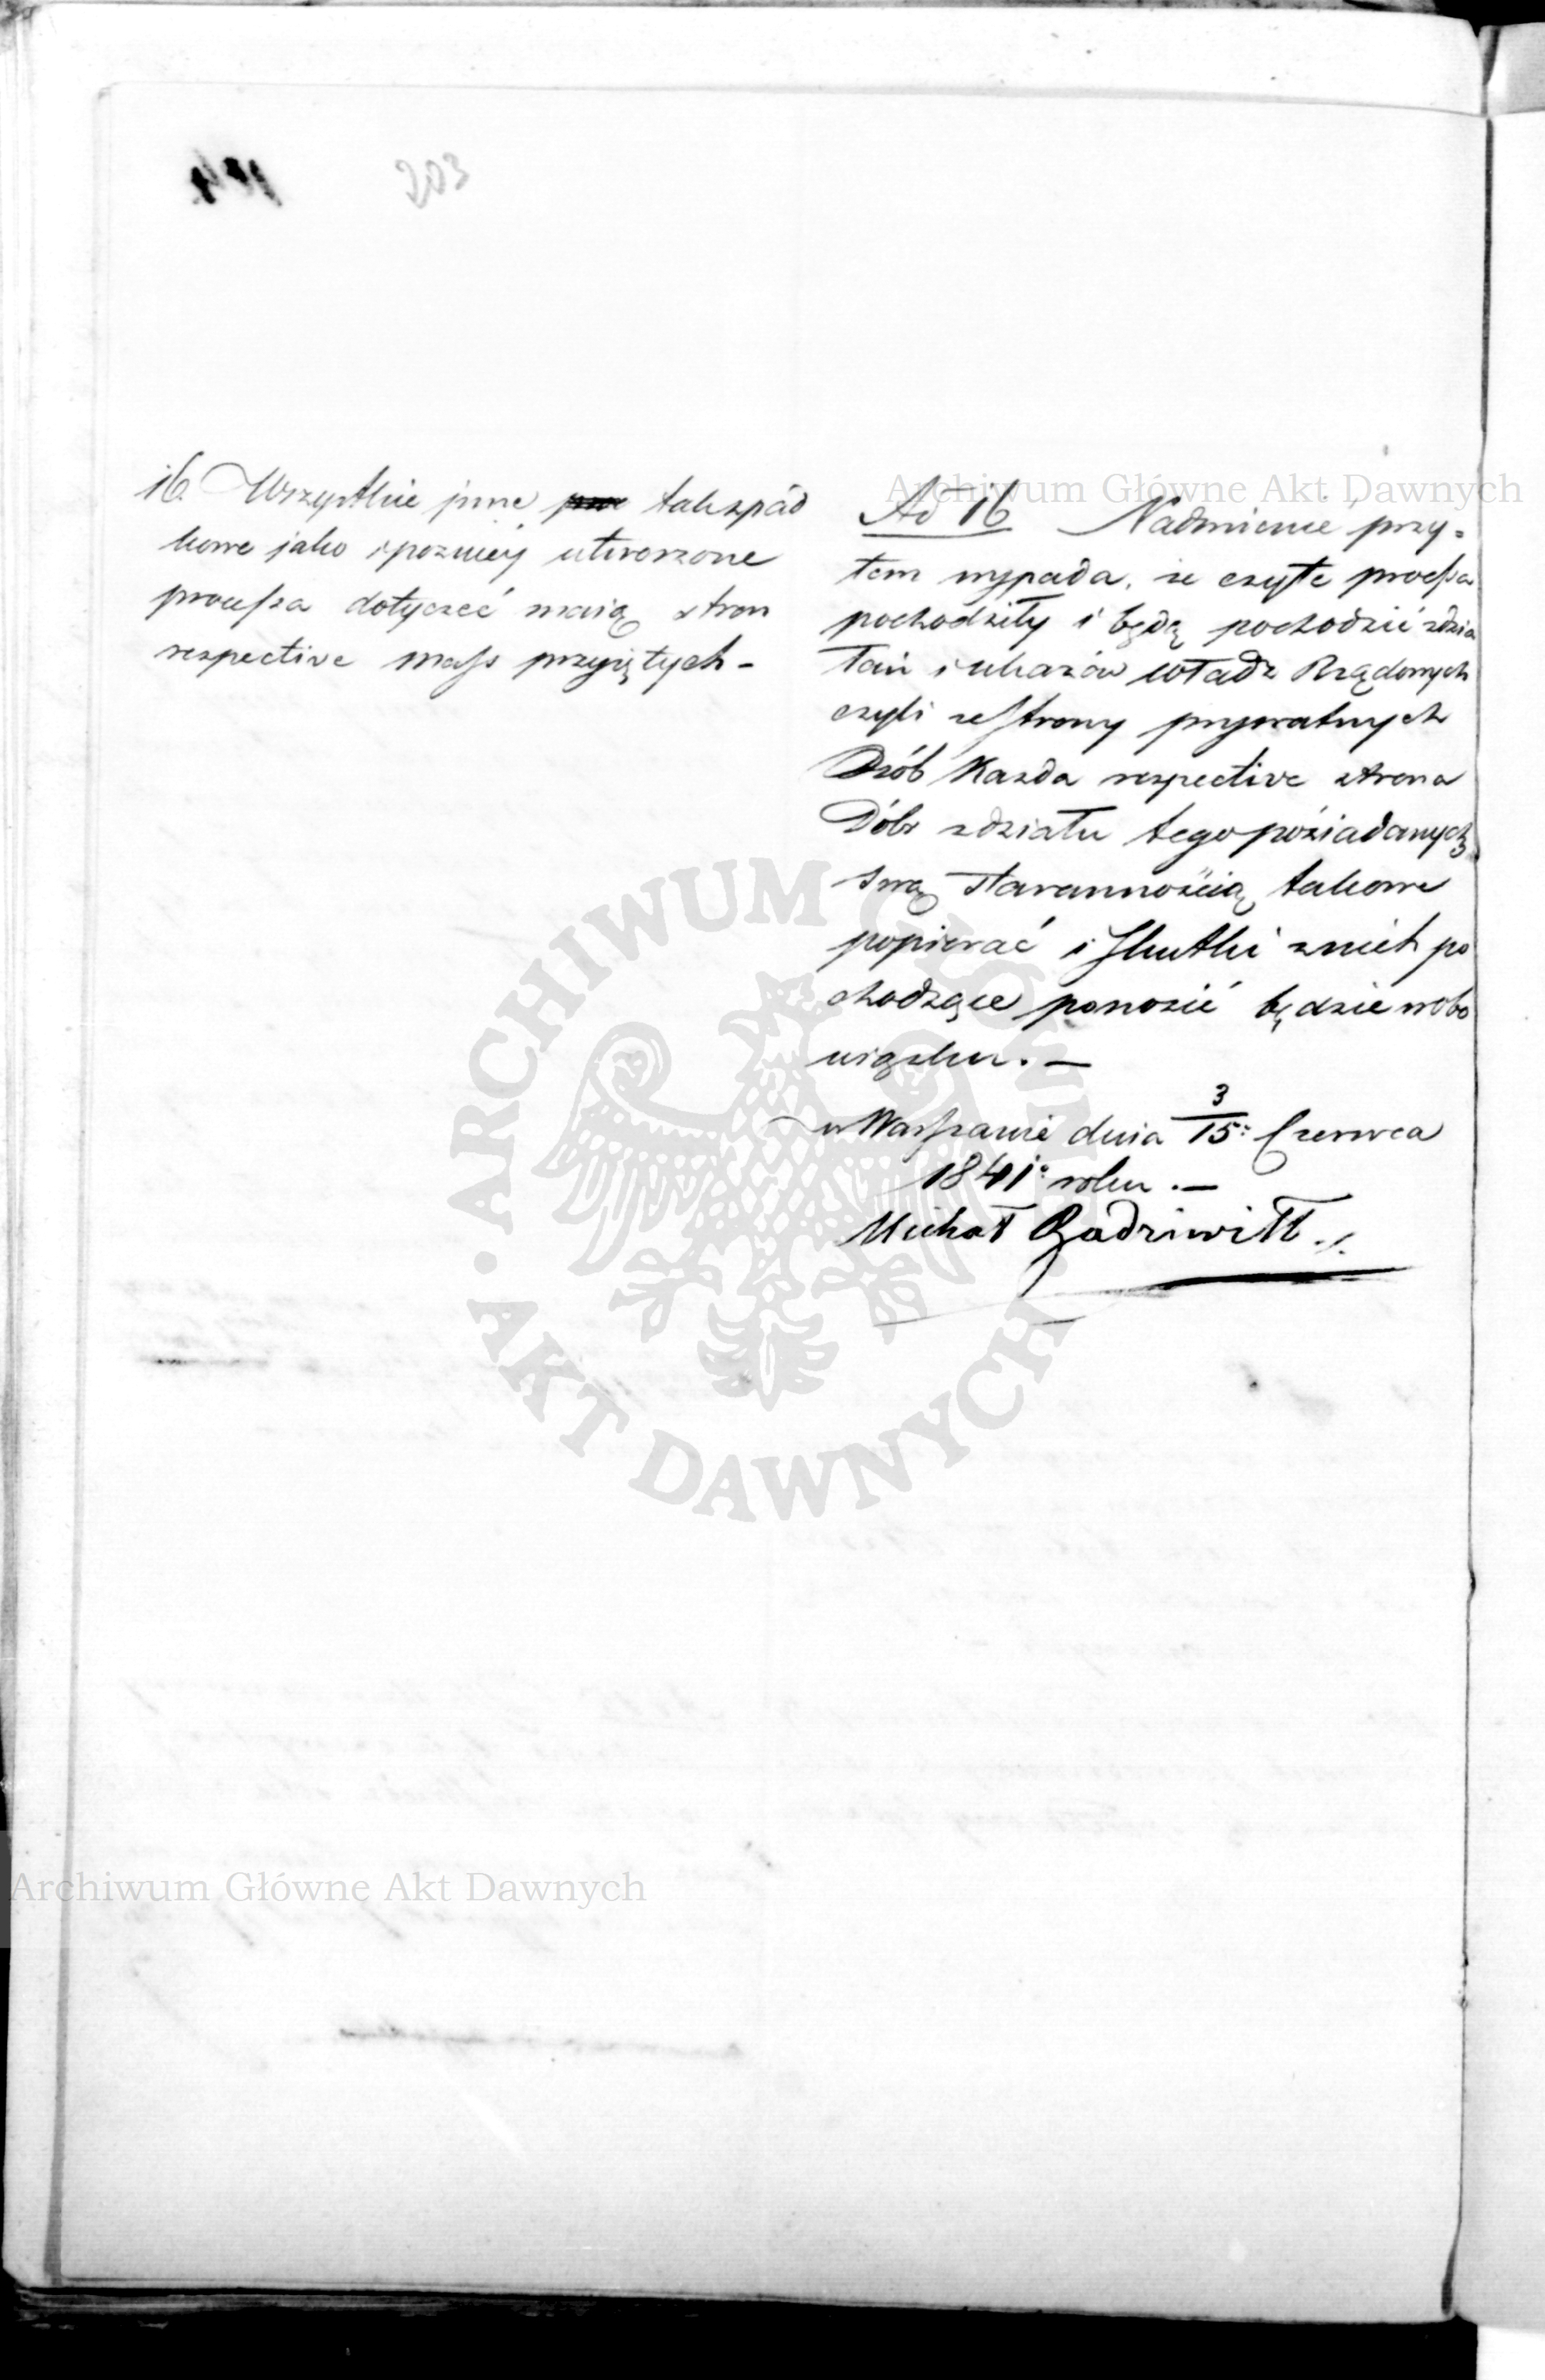 203
16. Wszystkie jnne tak spad
kowe jako i pozniey utworzone
processa dotyczeć maią stron
respective mass przyiętych -
Archiwum Główne Akt Dawnych
Ad 16 Nadmienić przy=
tem wypada, że czyte processa
pochodziły i będą pochodzić zdzia
łań i ukazów władz Rządowych
czyli ze strony prywatnych
Osób Każda respective strona
Dóbr zdziału tego pośiadanych
swą starannością takowe
popierać i skutki znich po
chodzące ponosić będzie wobo
wiązku. —
w Warszawie dnia 3/15: Czerwca
1841° roku . —
Michał Radziwiłł
ARCHIWUM GŁÓWNE
AKT DAWNYCH
Archiwum Główne Akt Dawnych